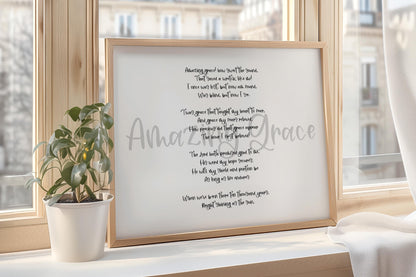 Amazing grace! how sweet the sound,
That saved a wretch; like me!
I once was lost, but now am found,
Was blind, but now I see.
'Twas grace that taught my heart to fear,
And grace my fears relieved;
How precious did that grace appear
The hour I first believed!
Amazing Grace
The Lord hath promised good to me,
His word my hope secures;
He will my shield and portion be
As long as life endures.
When we've been there ten thousand years,
Bright shining as the sun.